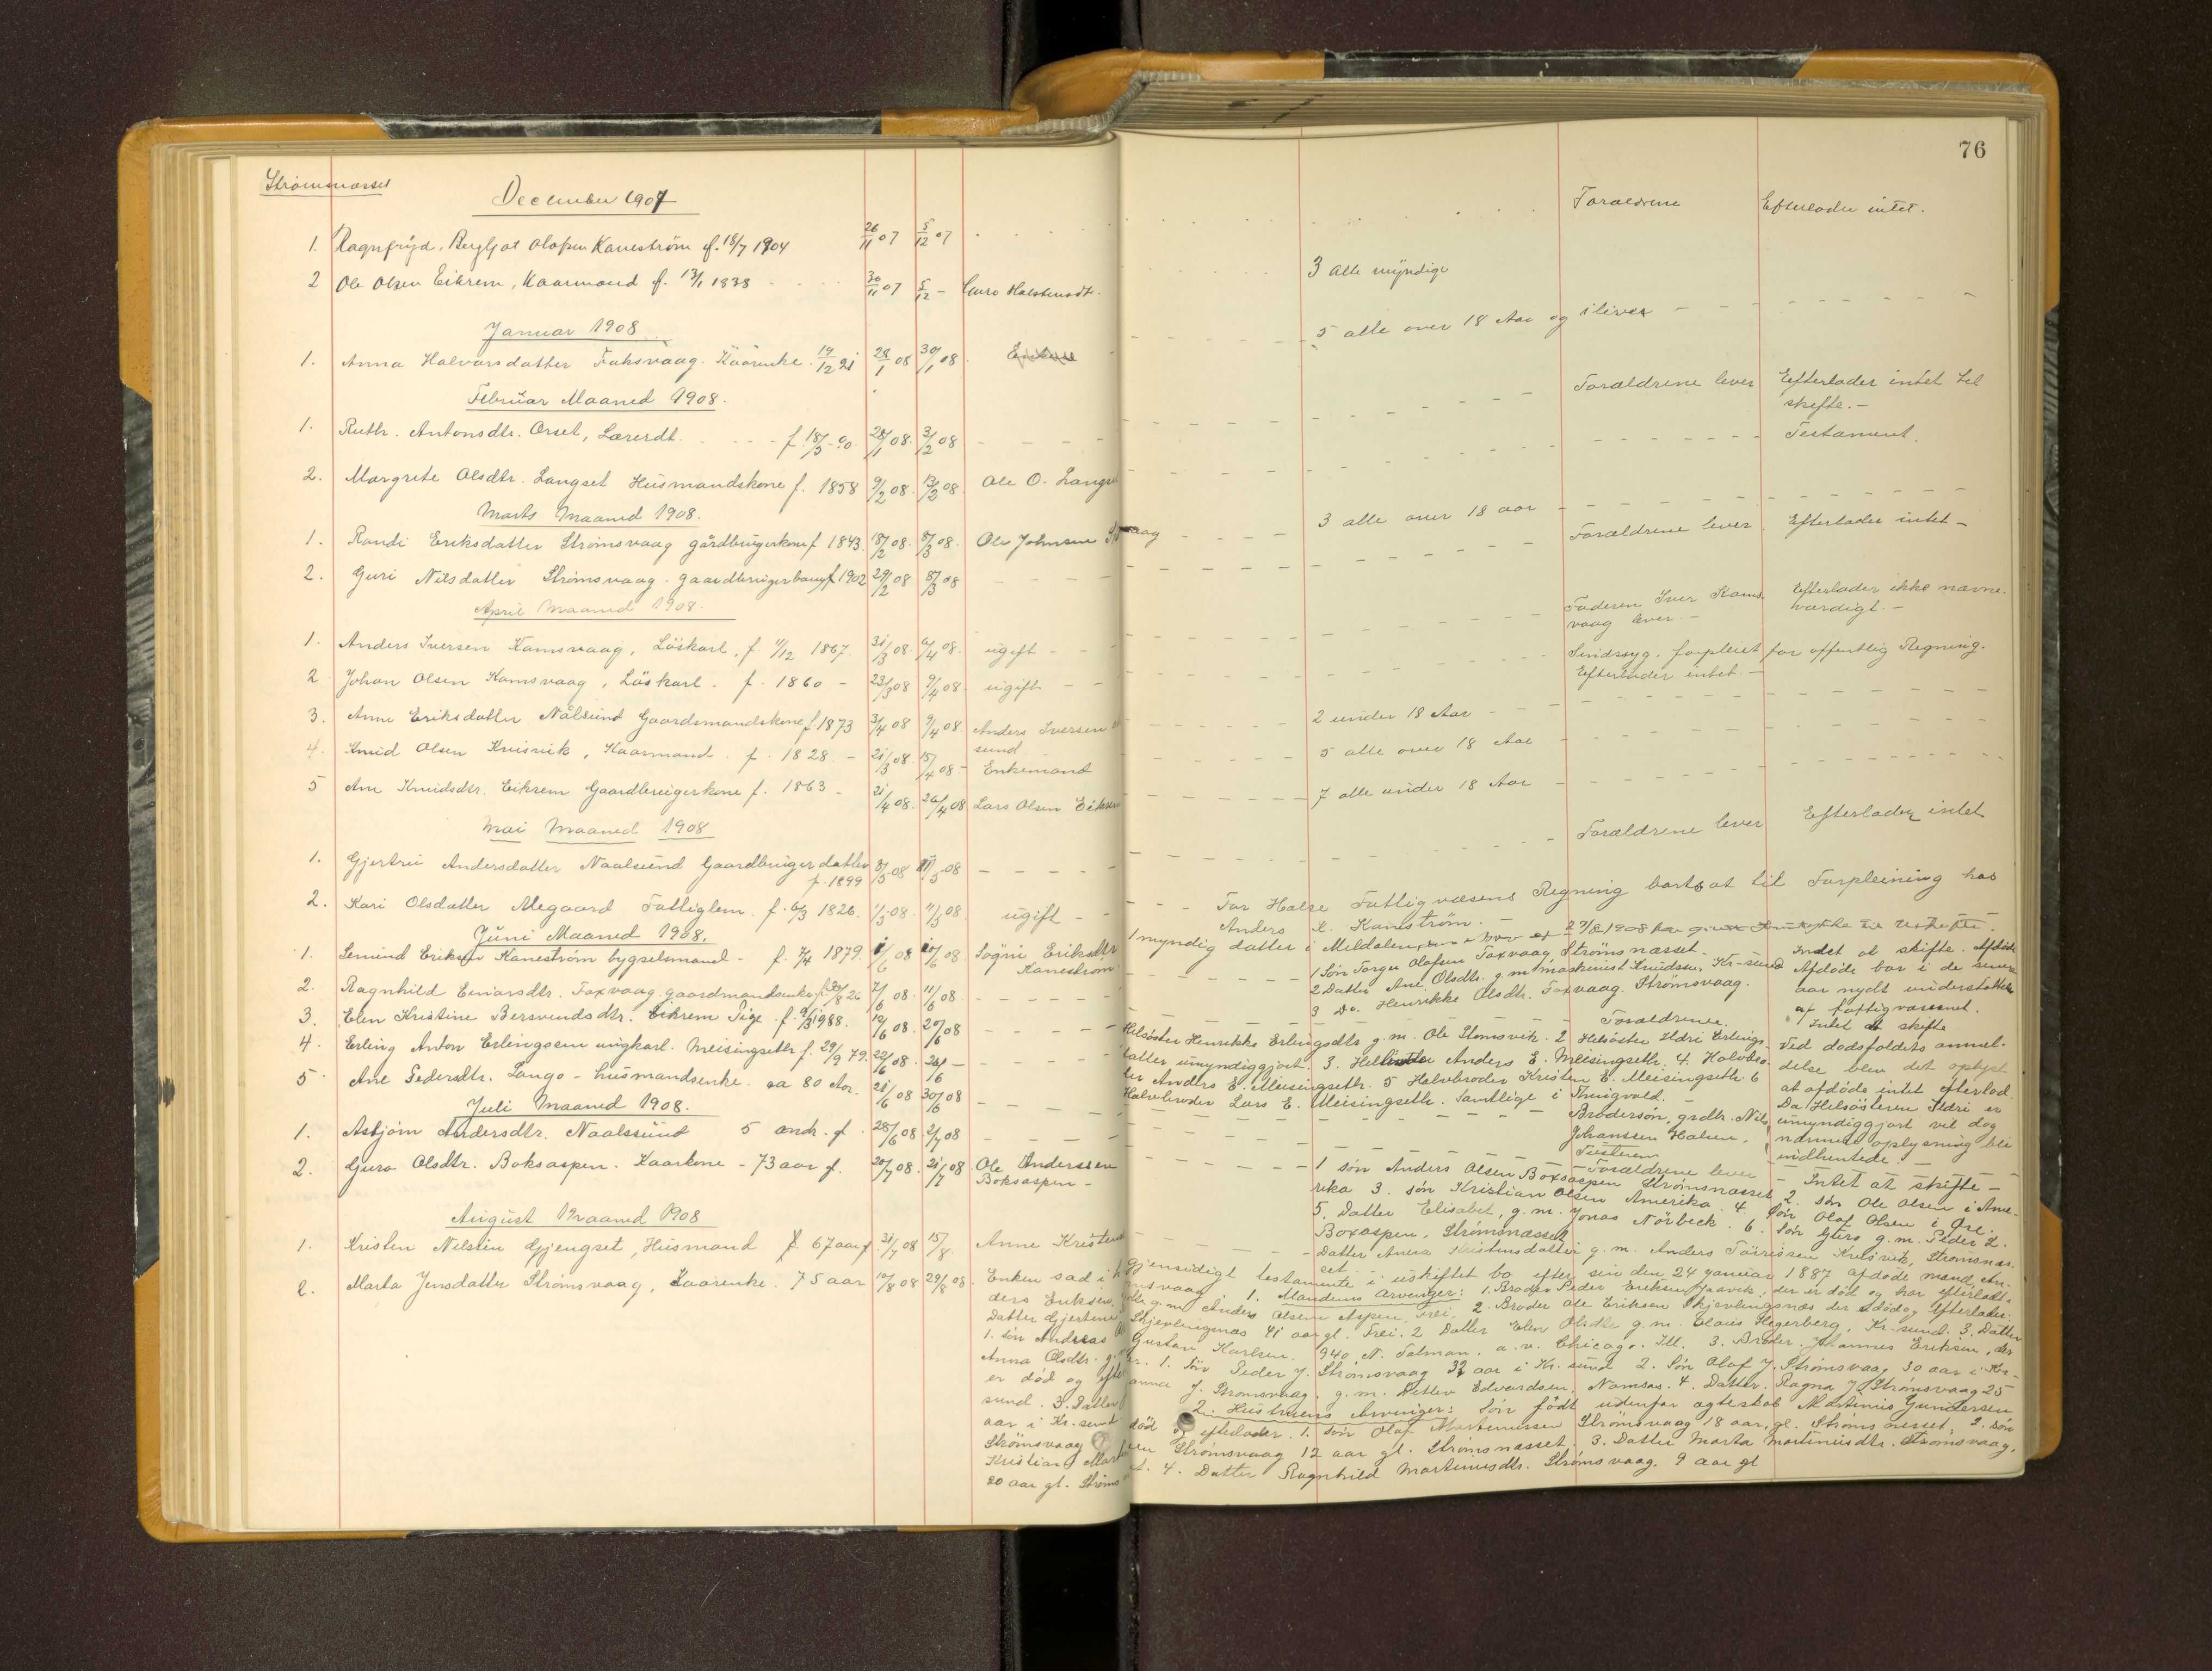 76
Strömsnæsset
December 1907
Foræeldrene Efterlader intet.
1. Ragnfrid. Bergljot Olafsen Kaneström f. 18/7 1904 26/11 07 5/12 07
2 Ole Olsen Eikrem, Kaarmand f. 13/1 1838 30/11 07 5/12 - Guro Halstensdt. 3 alle myndige
Januar 1908
1. Anna Halvorsdatter Faksvaag. Kaarenke. 19/12 21 28/1 08 30/1 08. 5 alle over 18 Aar og ilive
Februar Maaned 1908.
1. Ruth. Antonsdtr. Orset, Lærerdt. f. 18/5 - 90. 28/1 08. 3/2 08 Foraldrene lever Efterlader intet til
skifte. -
2. Margrete Olsdtr. Langset Husmandskone f. 1858 9/2 08. 13/2 08. Ole O. Langset Testament.
Marts Maaned 1908.
1. Randi Eriksdatter Strömsvaag gårdbrugerkone f 1843. 18/2 08. 8/3 08. Ole Johnsen vaag 3 alle over 18 aar
2. Guri Nilsdatter Strömsvaag. gaardbruger f 1902 29/2 08 8/3 08 Foraldrene lever Efterlader intet -
April Maaned 1908.
1. Anders Iversen Kamsvaag, Löskarl, f. 11/12 1867. 31/3 08. 6/4 08. ugift - Faderen Iver Kams-
vaag lever. - Efterlader ikke nævne-
værdigt. -
2 Johan Olsen Kamsvaag, Löskarl. f. 1860 - 23/3 08 9/4 08. ugift - Sindssyg. forpleiet for offentlig Regning.
Efterlader intet. -
3. Anne Eriksdatter Nålsund Gaardsmandskone f. 1873 3/4 08 9/4 08. Anders Iversen
sund 2 under 18 Aar -
4. Knud Olsen Kvisvik, Kaarmand. f. 1828. - 21/3 08. 15/4 08 - Enkemand 5 alle over 18 Aar
5 Ane Knudsdtr. Eikrem Gaardbrugerkone f. 1863 - 21/4 08. 26/4 08 Lars Olsen Eikrem 7 alle under 18 Aar
Mai Maaned 1908
1. Gjertru Andersdatter Naalsund Gaardbruger datter
f. 1899 3/5 08 11/5 08 Foraldrene lever Efterlader intet
2. Kari Olsdatter Megaard Fattiglem. f. 6/3 1826. 1/5 08. 11/5 08. ugift - For Halse Fattigvæsens Regning bortsat til Forpleining hos
Anders L. Kaneström. -
Juni Maaned 1908.
1. Semund Eriksen Kaneström bygselsmand - f. 7/4 1879. 1/6 08 10/6 08 Sögni Eriksdtr
Kaneström 1 myndig datter i Meldalen
2. Ragnhild Einarsdtr. Foxvaag. gaardmandsenke f. 26 7/6 08. 11/6 08. 1 Søn Torger Olafsen Foxvaag Strømsnæsset.
2 Datter Ane Olsdtr. g.m. maskinist Knudsen. Kr-sund
3 Do. Henrikke Olsdtr. Foxvaag. Strömsvaag.
Intet at skifte. Afdøde
Afdøde har i de senere
aar nydt understøttelse
af fattigvæsenet.
3. Elen Kristine Bersvendsdtr. Eikrem Pige. f. 9/3 1988. 19/6 08. 20/6 08 Foraldrene. Intet at skifte
4. Erling Anton Erlingsen ungkarl. Meisingseth f. 29/9 79. 22/6 08. 26/6 -
Helsøster Henrikke Erlingsdtr g.m. Ole Stomsvik. 2 Helsöster Ildri Erlings-
datter umyndiggjort. 3. Anders E. Meisingseth. 4. Halvbro-
der Anders E. Meisingseth. 5 Halvbroder Kristen E. Meisingseth. 6
Halvbroder Lars E. Meisingseth. Samtlige i Thingvold. -
Ved dødsfaldets anmel-
delse blev det oplyst
at afdøde intet efterlod.
Da Helsösteren Ildri er
umyndiggjort vil dog
nærmere oplysning bli
indhentede.
5 Ane Pedersdtr. Langø - husmandsenke. ca 80 Aar. 21/6 08 30/6 08 Brødersøn, grdbr. Nils
Johanssen Halsen.
Juli Maaned 1908.
1. Asbjörn Andersdtr. Naalssund 5 mdr. f. 28/6 08 2/7 08 Foraldrene lever - Intet at skifte -
2. Guro Olsdtr. Boksaspen. Kaarkone - 73 aar f. 20/7 08. 21/7 08 Ole Anderssen
Boksaspen -
1 søn Anders Olsen Boxsaspen Strømsnæsset, 2. søn Ole Olsen i Ame-
rika 3. søn Kristian Olsen Amerika. 4. Søn Olaf Olsen i Øre.
5. Datter Elisabet, g.m. Jonas Nörbech. 6. Søn g.m. Peder 2.
Boxaspen, Strømsnæsset
August Maaned 1908
1. Kristen Nilsen Gjengset, Husmand 67 aar f. 31/7 08 15/8. Anne Kristens
Datter Anne Kristensdatter g.m. Anders Kvisvik, Strømsnæs-
set
2. Marta Jensdatter Strömsvaag, Kaarenke. 75 aar 19/8 08 29/8 08. Enken sad i gjensidigt testamente i uskiftet bo efter sin den 24 januar 1887 afdøde mand, An-
ders Eriksen Strømsvaag. 1. Mandens Arvinger: 1. Broder Peder Eriksen Jaavik, der er død og har efterladt
Datter Gjertine g.m. Anders Olsen Aspen, Frei. 2. Broder Ole Eriksen Skjevlingsnæs der er død og efterlader:
1. søn Andreas Skjevlingsnæs 41 aar gl. Frei. 2 Datter Elen Olsdtr g.m. Claus Hegerberg, Kr-sund. 3. Datter
Anna Olsdtr. g.m. Gustav Karlsen. 940 N. Talman. a.v. Chicago. Ill. 3. Broder Johannes Eriksen, der
er død og efterlader. 1. Søn Peder J. Strømsvaag 32 aar i Kr. sund 2. Søn Olaf J. Strømsvaag 30 aar i Kr-
sund. 3. Datter anna J. Strømsvaag, g.m. Detlev Edvardsen, Namsos. 4. Datter. Ragna J. Strømsvaag 25
aar i Kr. sund 2. Hustruens Arvinger: Søn født udenfor ægteskab Martinus Gundersen
Strömsvaag død og efterlader. 1. Søn Olaf Martinussen Strømsvaag 18 aar gl. Strømsnesset, 2. søn
Kristian Martinussen Strømsvaag 12 aar gl. Strömsnæsset. 3. Datter Marta Martinusdtr. Strømsvaag,
20 aar gl. Strøms 4. Datter Ragnhild Martinusdtr. Strömsvaag. 9 aar gl